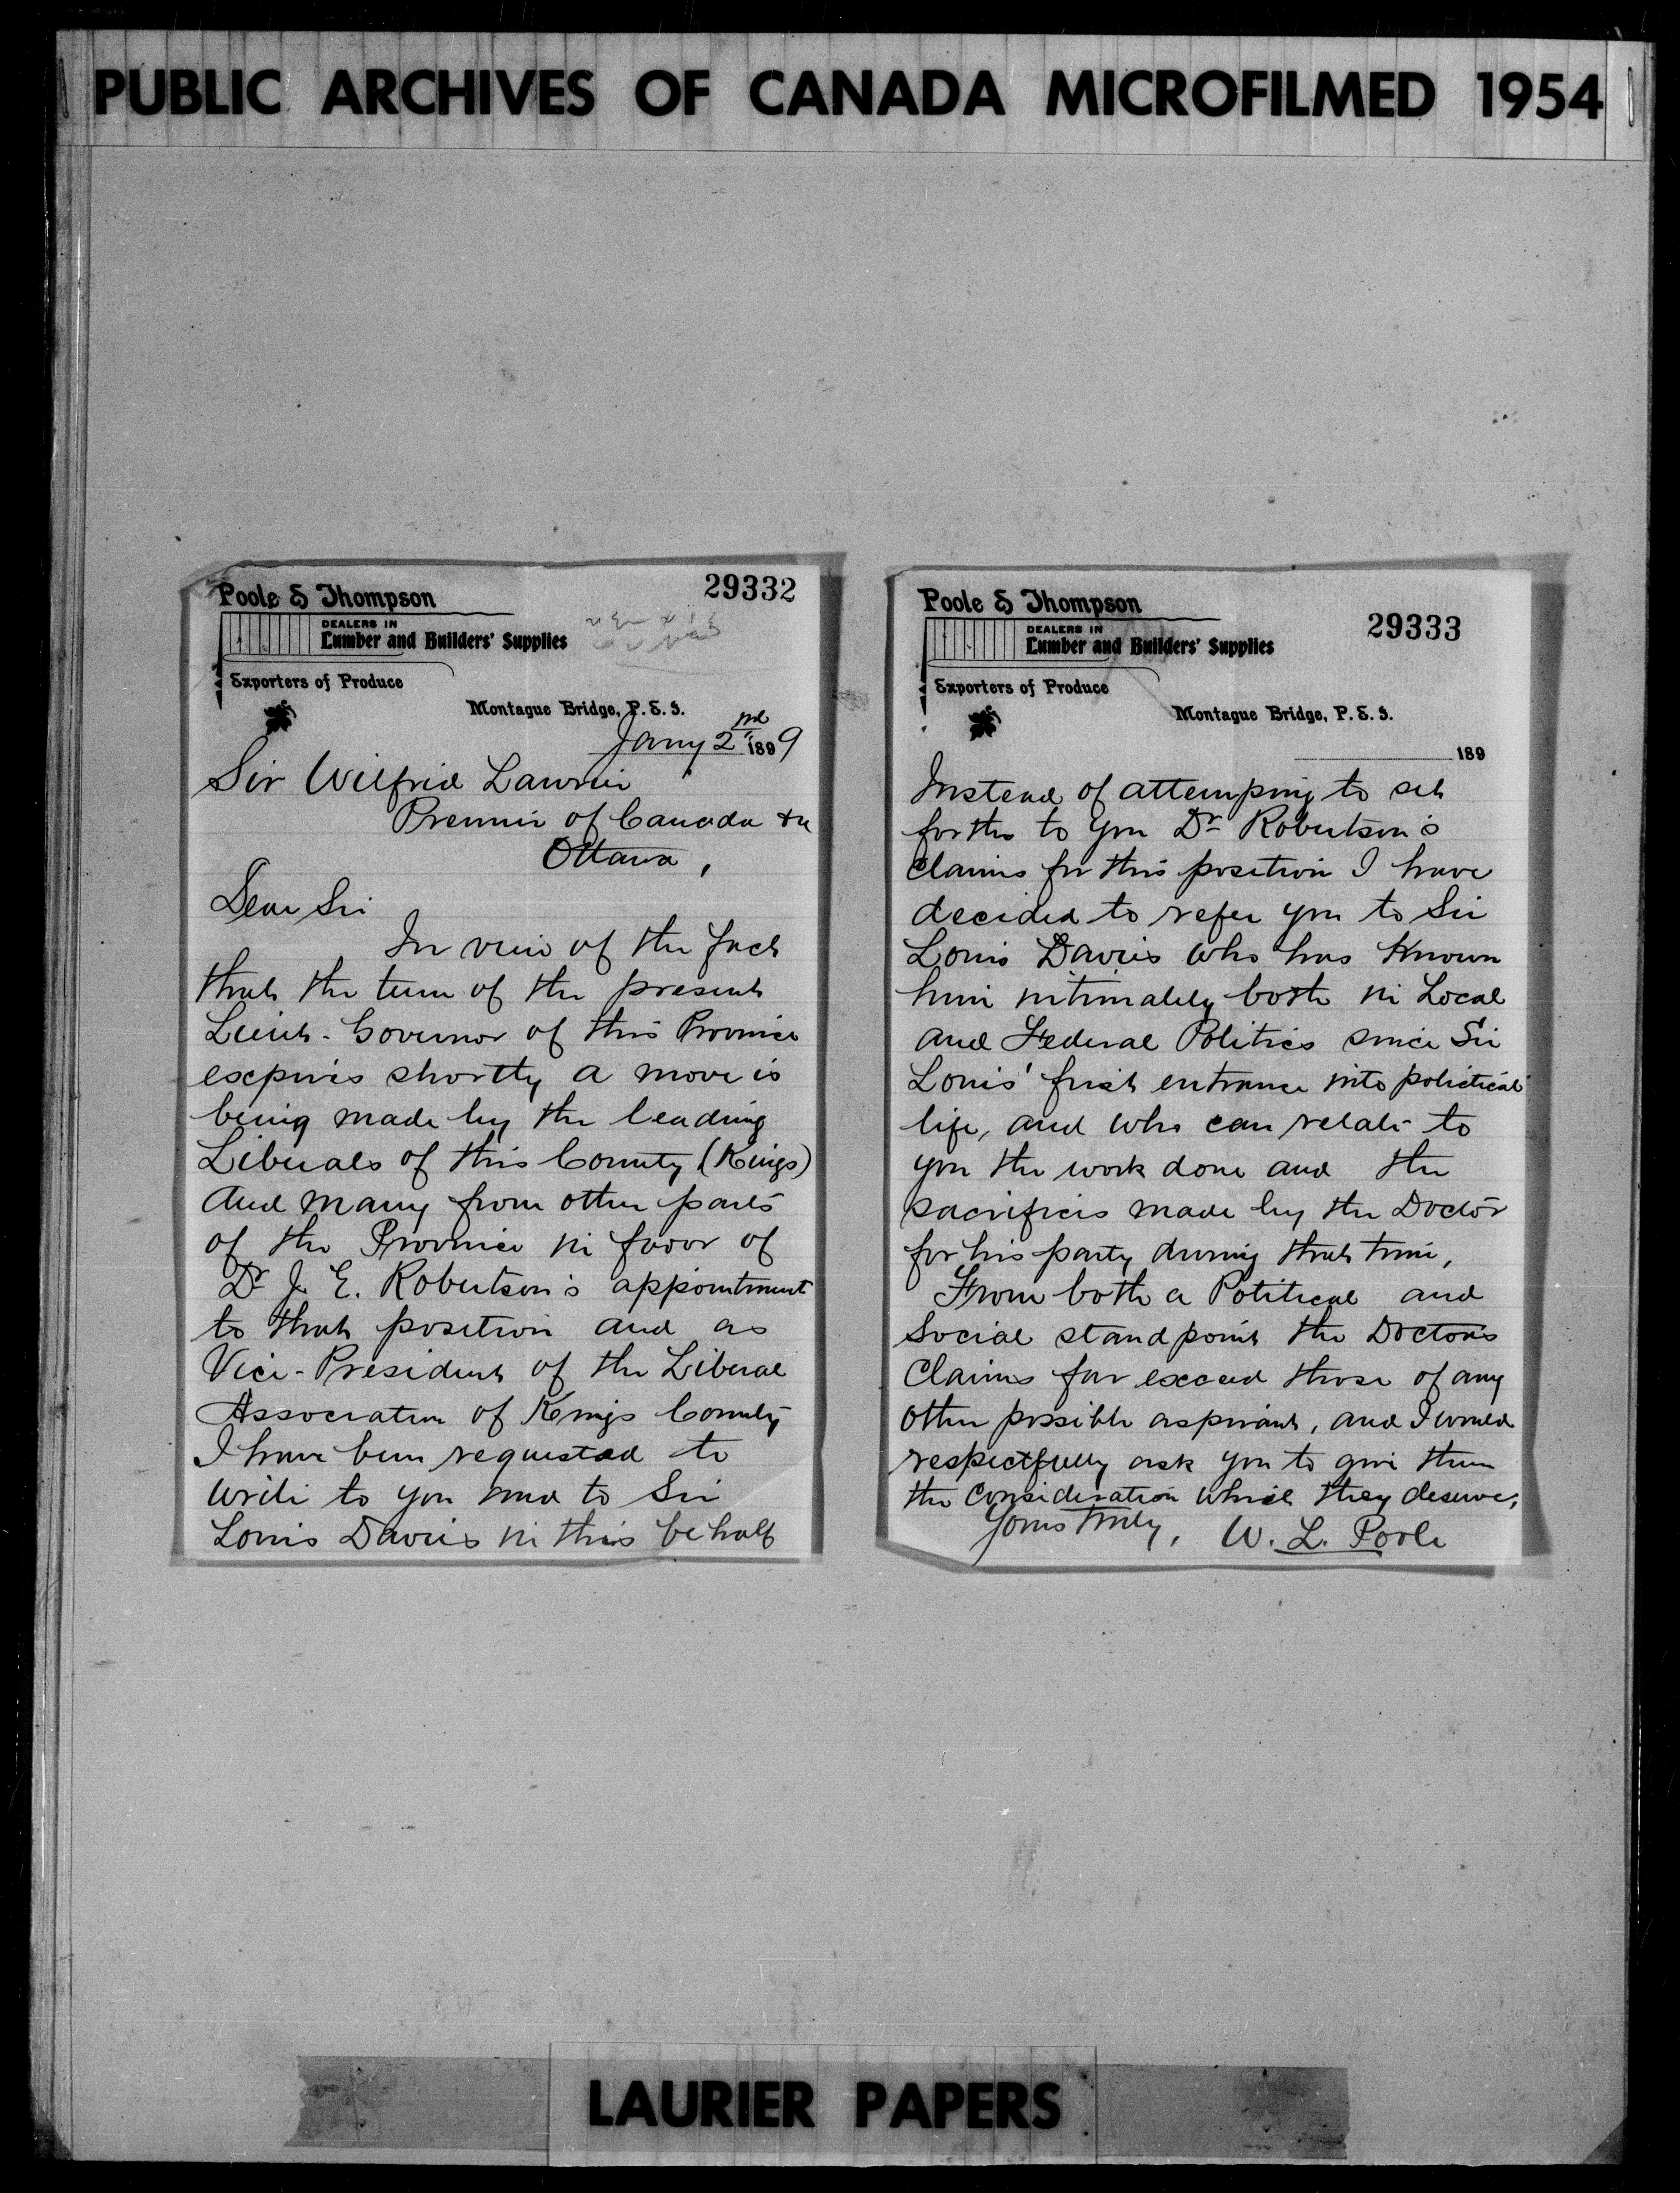 PUBLIC ARCHIVES OF CANADA MICROFILMED 1954
29332
Poole & Thompson
DEALERS IN
Lumber and Builders' Supplies
Exporters of Produce
Montague Bridge, P. E. I.
Jany 2nd 1899
Sir Wilfrid Laurier
Premier of Canada &c
Ottawa,
Dear Sir
In view of the fact
that the term of the present
Lieut-Governor of this Province
expires shortly a move is
being made by the leading
Liberals of this County (Kings)
and many from other parts
of the Province in favor of
Dr J. E. Robertson's appointment
to that position and as
Vice-President of the Liberal
Association of Kings County
I have been requested to
write to you and to Sir
Louis Davies in this behalf
29333
Poole & Thompson
DEALERS IN
Lumber and Builders' Supplies
Exporters of Produce
Montague Bridge, P. E. I.
189
Instead of attempting to set
forth to you Dr Robertson's
claims for this position I have
decided to refer you to Sir
Louis Davies who has known
him intimately both in Local
and Federal Politics since Sir
Louis' first entrance into political
life, and who can relate to
you the work done and the
sacrifices made by the Doctor
for his party during that time,
From both a Political and
Social standpoint the Doctor's
Claims far exceed those of any
other possible aspirant, and I would
respectfully ask you to give them
the consideration which they deserve,
Yours truly, W. L. Poole
LAURIER PAPERS